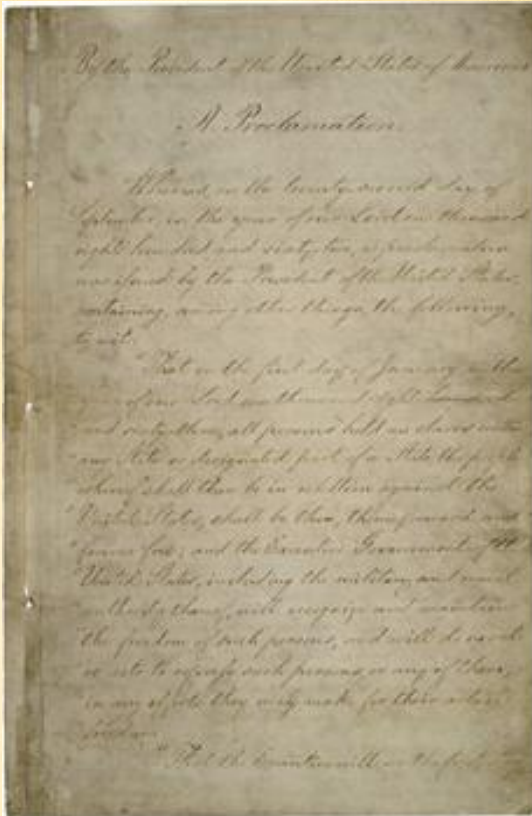 By the President of the United States of America
A Proclamation.
Whereas, on the twenty-second day of
September, in the year of our Lord one thousand
eight hundred and sixty-two, a proclamation
was issued by the President of the United States,
containing, among other things, the following,
to wit:
"That on the first day of January, in the
year of our Lord one thousand eight hundred
and sixty-three, all persons held as slaves within
any State or designated part of a State, the people
whereof shall then be in rebellion against the
United States, shall be then, thenceforward, and
forever free; and the Executive Government of the
United States, including the military and naval
authority thereof, will recognize and maintain
the freedom of such persons, and will do no act
or acts to repress such persons, or any of them,
in any efforts they may make for their actual
freedom.
"That the Executive will, on the first